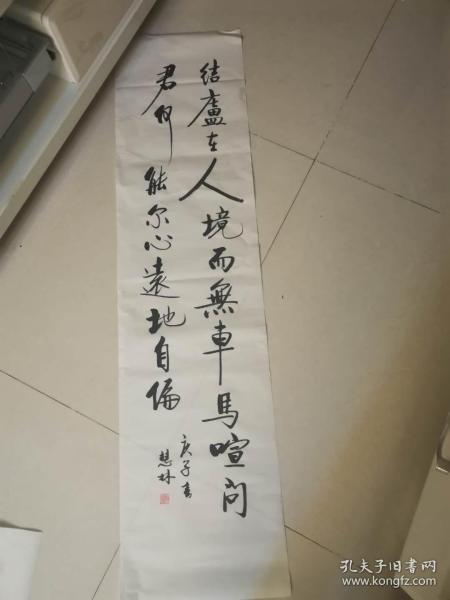 结廬在人境而無車馬喧问
君何能尔心遠地自偏
庚子春
慧林
孔夫子旧书网
www.kongfz.com